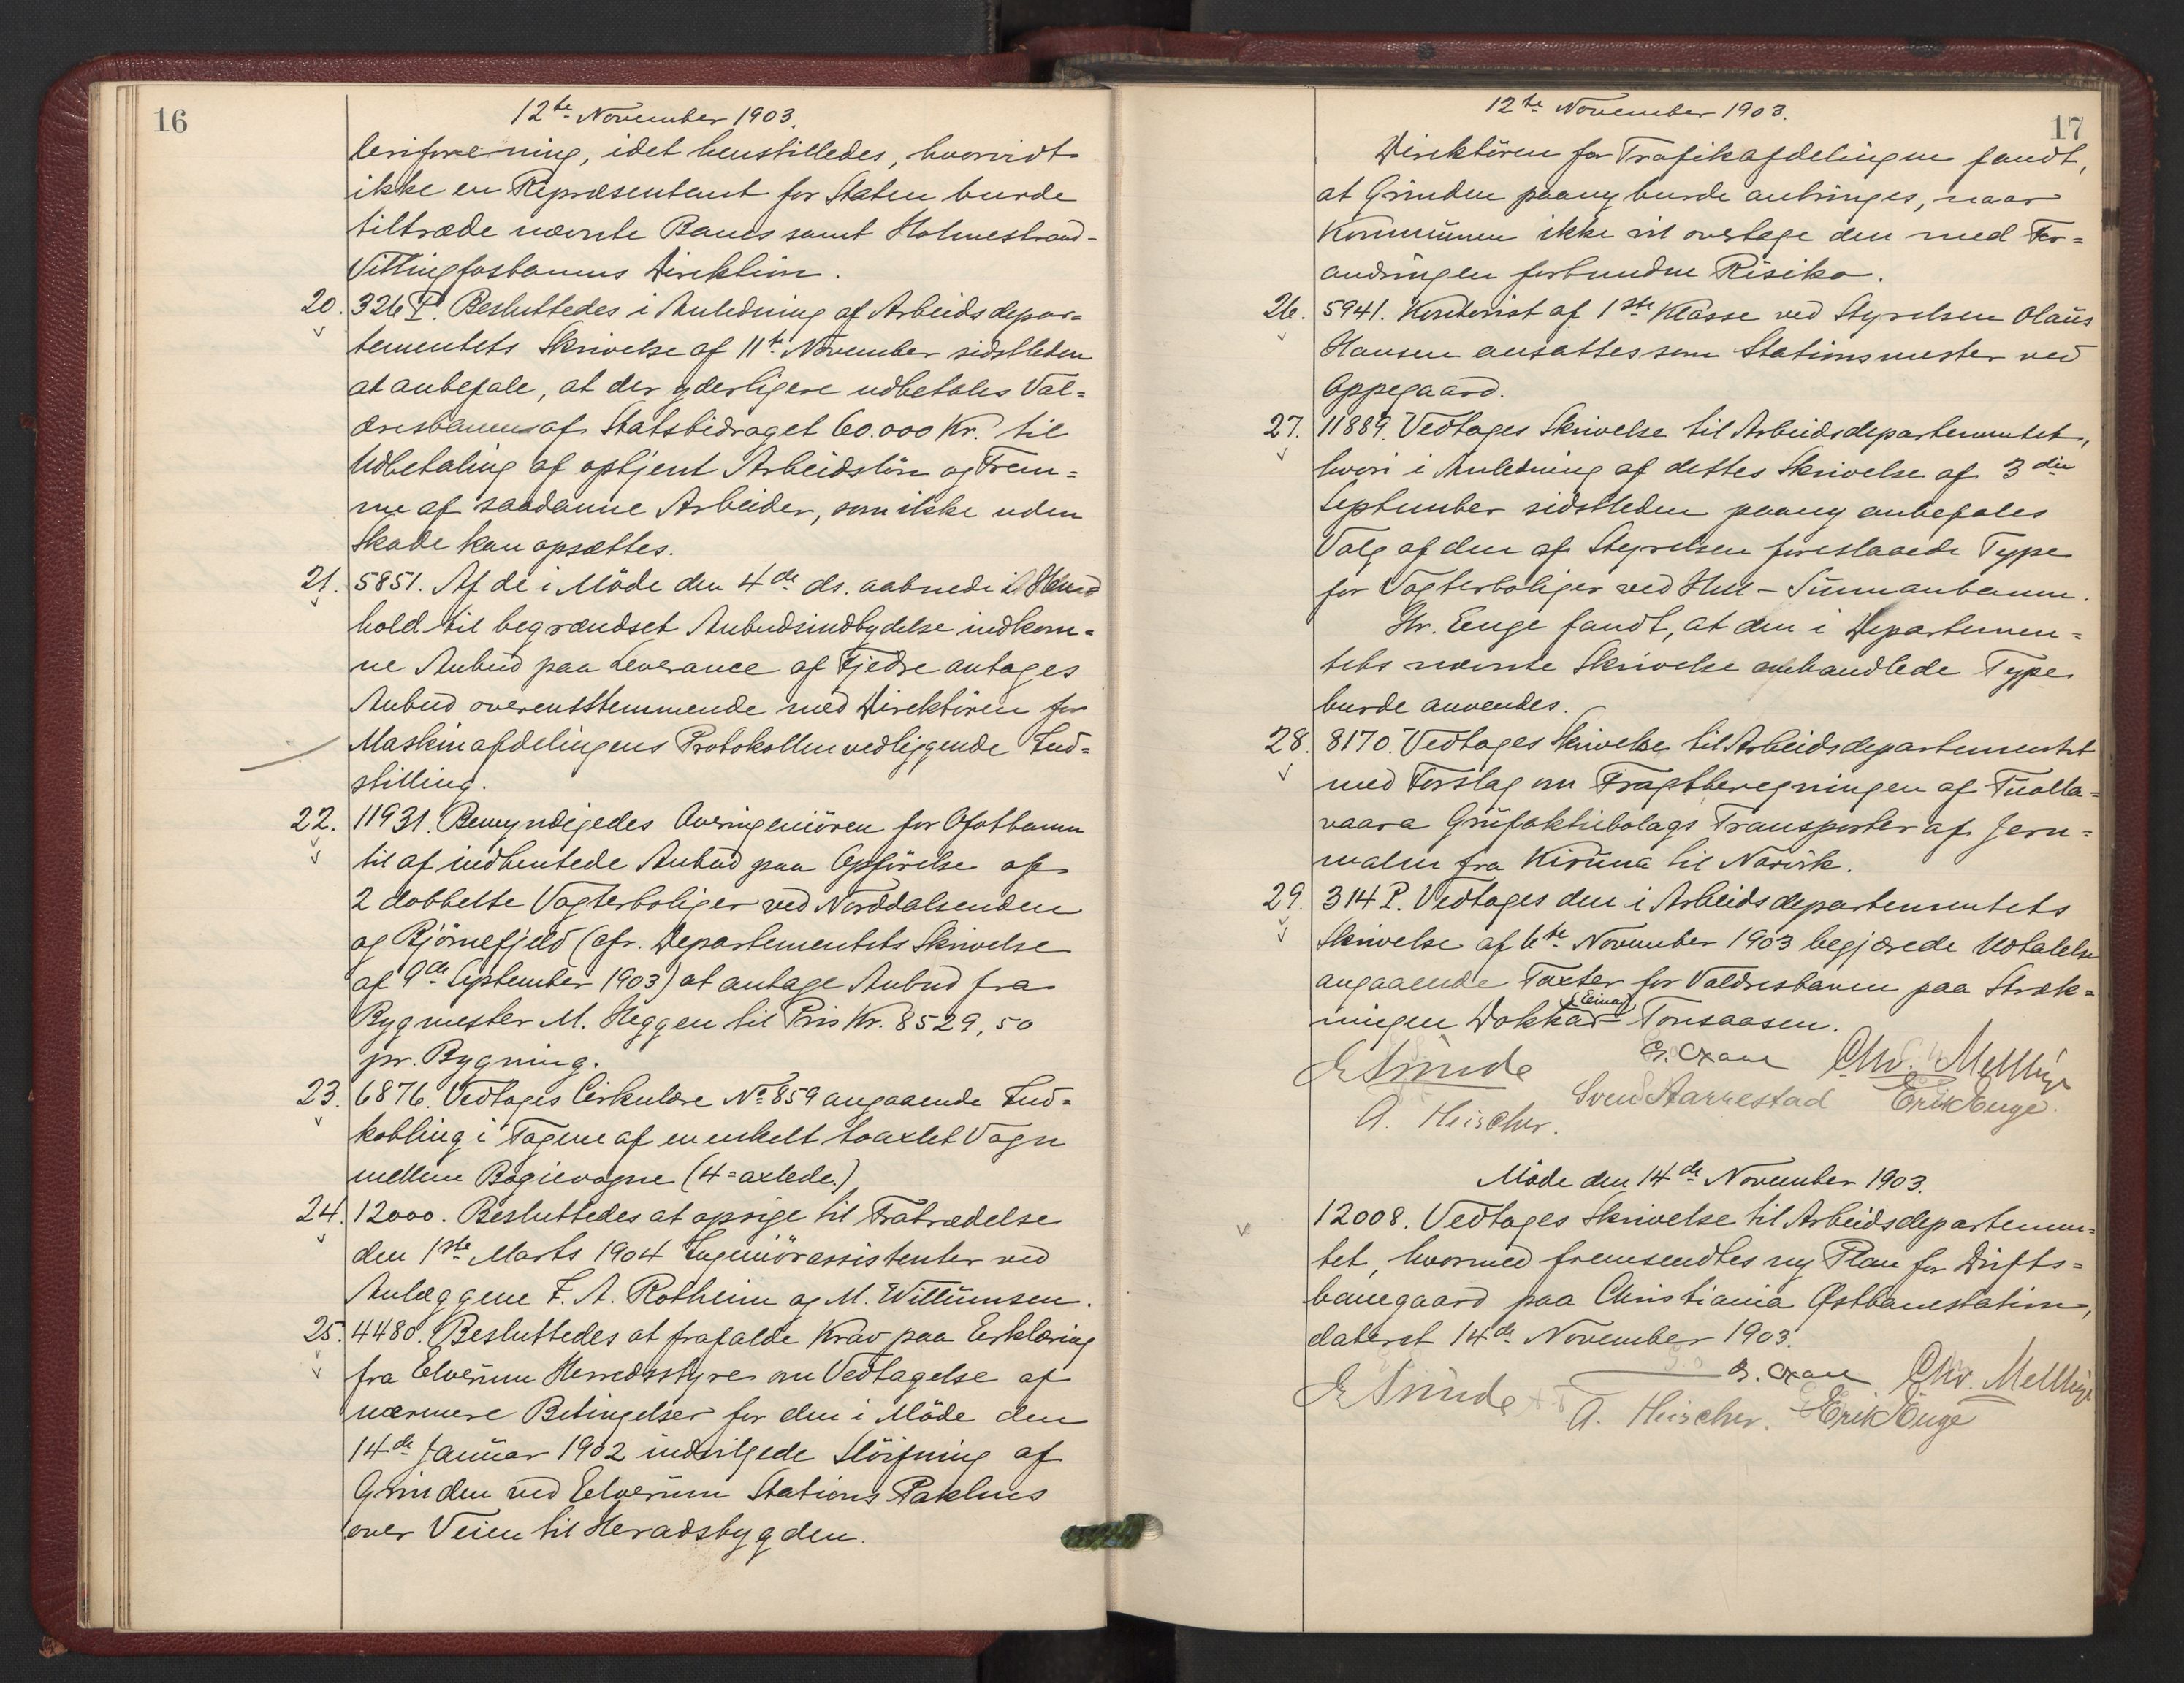 16
12te November 1903.
ikke en Repræsentant for Staten burde
tiltræde nævnte Banes samt Holmestrand-
Vittingfosbanens Direktion.
20. 326 P. Besluttedes i Anledning af Arbeidsdepar=
tementets Skrivelse af 11te November sidstleden
at anbefale, at der yderligere udbetales Val=
dresbanen af Statsbidraget 60.000 Kr. til
Udbetaling af optjent Arbeidslön og Frem=
me af saadanne Arbeider, som ikke uden
Skade kan opsættes.
21. 5851. Af de i Möde den 4de ds. aabnede i Hen
hold til begrændset Anbudsindbydelse indkom=
ne Anbud paa Leverance af Fjedre antages
Anbud overensstemmende med Direktören for
Maskinafdelingens Protokollen vedliggende Ind=
stilling.
22. 11931. Bemyndigedes Overingeniören for Ofotbanen
til af indhentede Anbud paa Opförelse af
2 dobbelte Vogterboliger ved Norddalsenden
og Björnefjeld (cfr. Departementets Skrivelse
af 9de September 1903) at antage Anbud fra
Bygmester M. Heggen til Pris Kr. 8529,50
pr. Bygning.
23. 6876. Vedtoges Cirkulære No 859 angaaende Ind=
kobling i Togene af en enkelt toaxlet Vogn
mellem Bogievogne (4=axlede.)
24. 12000. Besluttedes at opsige til Fratrædelse
den 1ste Marts 1904 Ingeniörassistenter ved
Anlæggene F. A. Rotheim og M. Willumsen.
25. 4480. Besluttedes at frafalde Krav paa Erklæring
fra Elverum Herredsstyre om Vedtagelse af
nærmere Betingelser for den i Möde den
14de Januar 1902 indvilgede Slöifning af
Grinden ved Elverum Stations Pakhus
over Veien til Heradsbygden.
17
12te November 1903.
Direktören for Trafikafdelingen fandt,
at Grinden paany burde anbringes, naar
Kommunen ikke vil overtage den med For=
andringen forbundne Risiko.
26. 5941. Kontorist af 1ste Klasse ved Styrelsen Olaus
Hansen ansattes som Stationsmester ved
Oppegaard.
27. 11889. Vedtoges Skrivelse til Arbeidsdepartementet,
hvori i Anledning af dettes Skrivelse af 3die
September sidstleden paany anbefales
Valg af den af Styrelsen foreslaaede Type
for Vogterboliger ved Hell-Sunnanbanen.
Hr. Enge fandt, at den i Departemen=
tets nævnte Skrivelse omhandlede Type
burde anvendes.
28. 8170. Vedtoges Skrivelse til Arbeidsdepartementet
med Forslag om Fragtberegningen af Tuolla=
vaara Grufaktiebolags Transporter af Jern=
malm fra Kiruna til Narvik.
29. 314 P. Vedtoges den i Arbeidsdepartementets
Skrivelse af 6te November 1903 begjærede Udtalelse
angaaende Taxter for Valdresbanen paa Stræk=
ningen Dokka (Eina)- Tonsaasen.
E Sunde
G. Oxaal
Chr. Mellbye
Sven Aarrestad
Erik Enge.
A. Fleischer.
Möde den 14de November 1903.
12008. Vedtoges Skrivelse til Arbeidsdepartemen=
tet, hvormed fremsendtes ny Plan for Drifts=
banegaard paa Christiania Østbanestation,
dateret 14de November 1903.
E Sunde
Chr. Mellbye
A. Fleischer.
Erik Enge